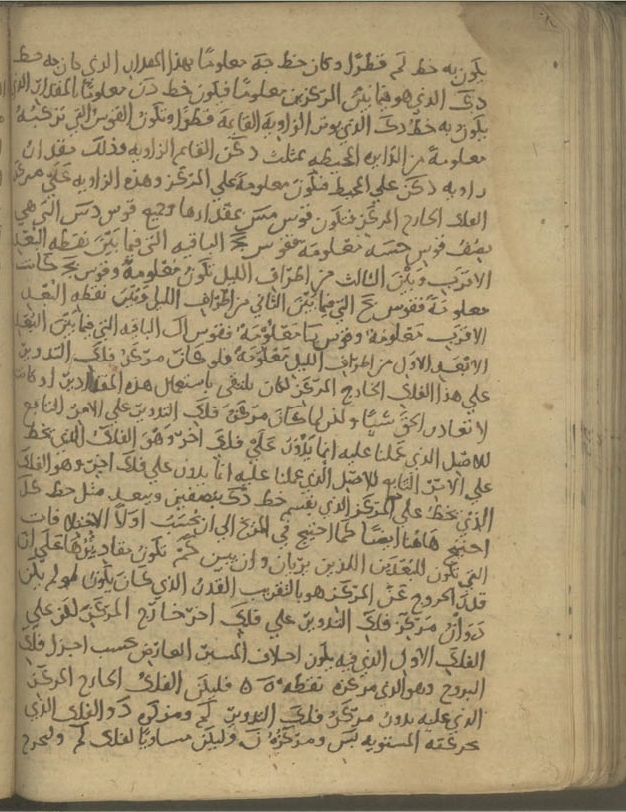 يكون به خط لم قطرًا وكان خط جه معلومًا بهذا المقدار الذي كان به خط
دك الذي هو فيما بين المركزين معلومًا فيكون خط دن معلومًا بالمقدار الذي
يكون به خط دك الذي يوتر الزاوية القايمة قطرًا وتكون القوس التي تركبه
معلومة من الدايره المحيطه بمثلث دكن القايم الزاويه وذلك مقدار
زاويه دكن علي المحيط فتكون معلومة علي المركز وهذه الزاويه علي مركز
الفلك الخارج المركز فتكون قوس مس بمقدارها وجميع قوس دس التي هي
نصف قوس معلومة فقوس حج الباقيه التي فيما بين نقطه البعد
الاقرب وبين الثالث من اطراف الليل تكون معلومة وقوس بج كانت
معلومة فقوس بح التي فيما بين الثاني من اطراف الليل وبين نقطه البعد
الاقرب معلومة وقوس با معلومة فقوس ال الباقيه التي فيما بين البعد
الابعد والاول من اطراف الليل معلومة فلو كان مركز فلك التدوير
علي هذا الفلك الخارج المركز لكان يكتفي باستعمال هذه المقادير اذ كانت
لا تغادر الحق شيًا ولكن لما كان مركز فلك التدوير علي الامر التابع
للاصل الذي عملنا عليه انما يدور علي فلك اخر وهو الفلك الذي يخط
علي الامر التابع للاصل الذي عملنا عليه انما يدور علي فلك اخر وهو الفلك
الذي يخط علي المركز الذي يقسم خط دك بنصفين وببعد مثل خط كل
احتيج هاهنا ايضًا كما احتيج في المريخ الي ان يحسب اولًا الاختلافات
التي تكون للبعدين اللذين يريان وان يبين كم تكون مقاديرها علي ان
قدر الخروج عن المركز هو بالتقريب القدر الذي كان يكون لو لم يكن
دوران مركز فلك التدوير علي فلك اخر خارج المركز لكن علي
الفلك الاول الذي فيه يكون اختلاف المسير العارض بحسب اجزا فلك
البروج وهو الذي مركزه نقطه ه فليكن الفلك الخارج المركز
الذي عليه يدور مركز فلك التدوير لم ومركزه د والفلك الذي
حركته المستويه نس ومركزه ن وليكن مساويًا لفلك لم وليخرج